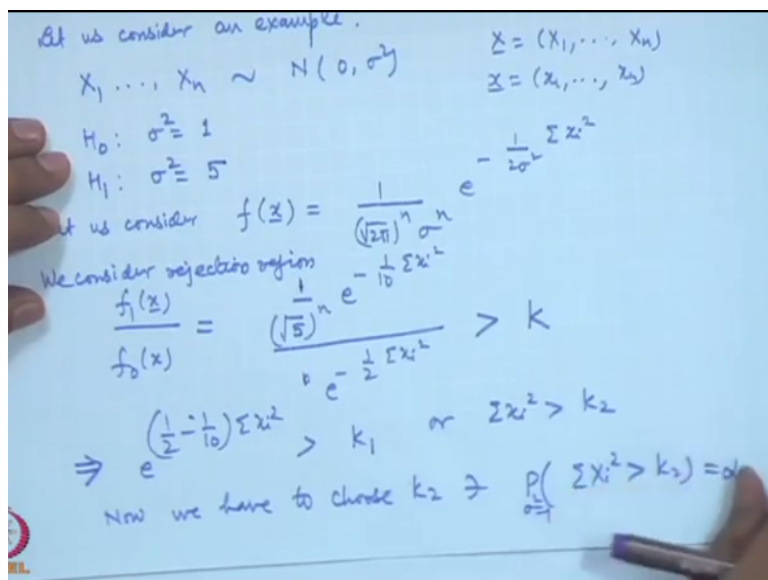 Let us consider an example.
X₁ ..., Xₙ ~ N(0, σ²)
X = (X₁, ..., Xₙ)
x = (x₁, ..., xₙ)
H₀: σ² = 1
H₁: σ² = 5
us consider f(x) = 1/((√2π)ⁿ σⁿ) e^(- 1/(2σ²) Σxᵢ²)
We consider rejection region
f₁(x)/f₀(x) = (1/(√5)ⁿ e^(- 1/10 Σxᵢ²))/(e^(- 1/2 Σxᵢ²)) > k
⇒ e^((1/2 - 1/10) Σxᵢ²) > k₁ or Σxᵢ² > k₂
Now we have to choose k₂ ∋ P_(σ²=1)(ΣXᵢ² > k₂) = α
EL